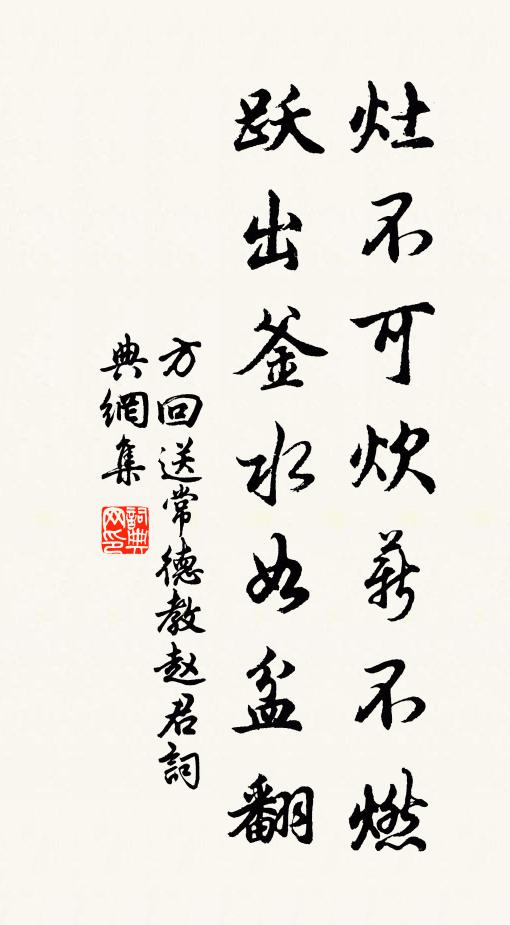 灶不可炊薪不燃
跃出釜水如盆翻
方回送常德教赵君詞
典網集
詞典
网印